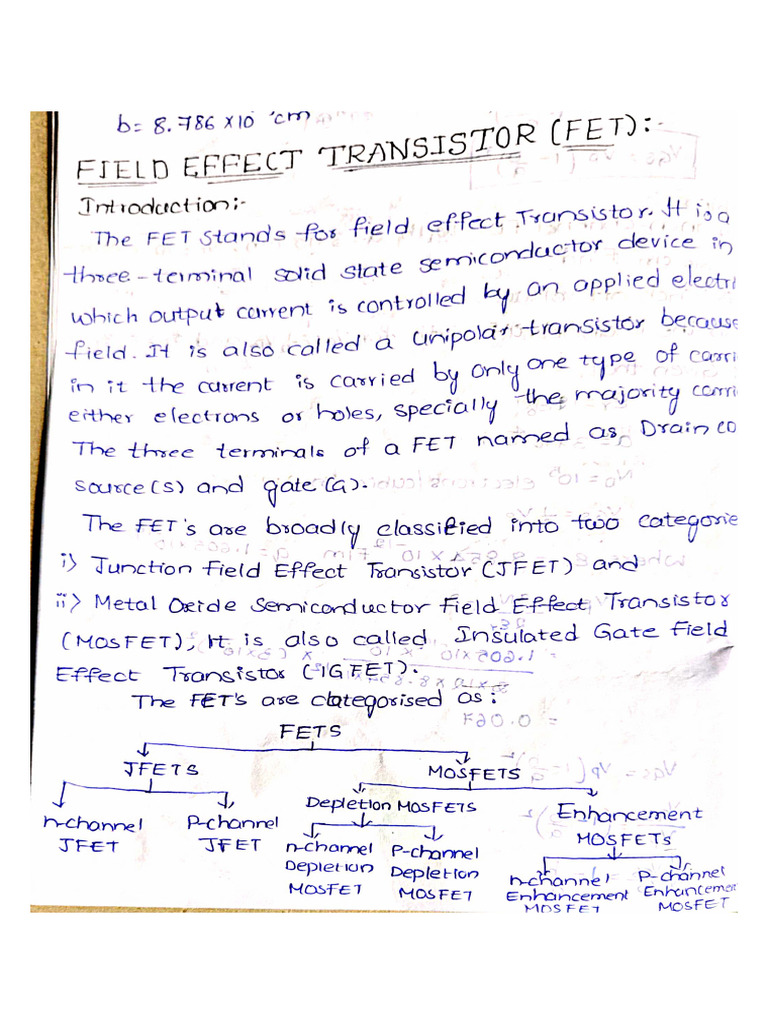 b= 8.786 × 10 cm
FIELD EFFECT TRANSISTOR (FET):-
Introduction:-
The FET stands for field effect Transistor. It is a
three-terminal solid state semiconductor device in
which output current is controlled by an applied electri
field. It is also called a unipolar transistor because
in it the current is carried by only one type of carri
either electrons or holes, specially the majority carri
The three terminals of a FET named as Drain CD
source(s) and gate (G).
The FET's are broadly classified into two categorie
i) Junction Field Effect Transistor (JFET) and
ii) Metal Oxide Semiconductor Field Effect Transistor
(MOSFET), It is also called Insulated Gate Field
Effect Transistor (IGFET).
The FET's are categorised as:
FETS
JFETS MOSFETS
n-channel JFET P-channel JFET Depletion MOSFETS Enhancement MOSFETs
n-channel Depletion MOSFET P-channel Depletion MOSFET n-channel Enhancement MOSFET P-channel Enhancement MOSFET